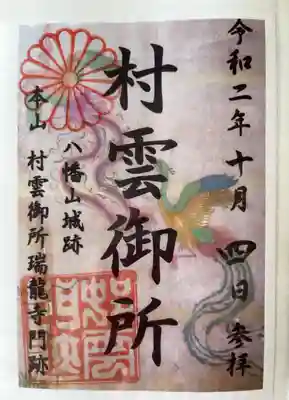 令和二年十月四日参拝
村雲御所
八幡山城跡
本山 村雲御所瑞龍寺門跡